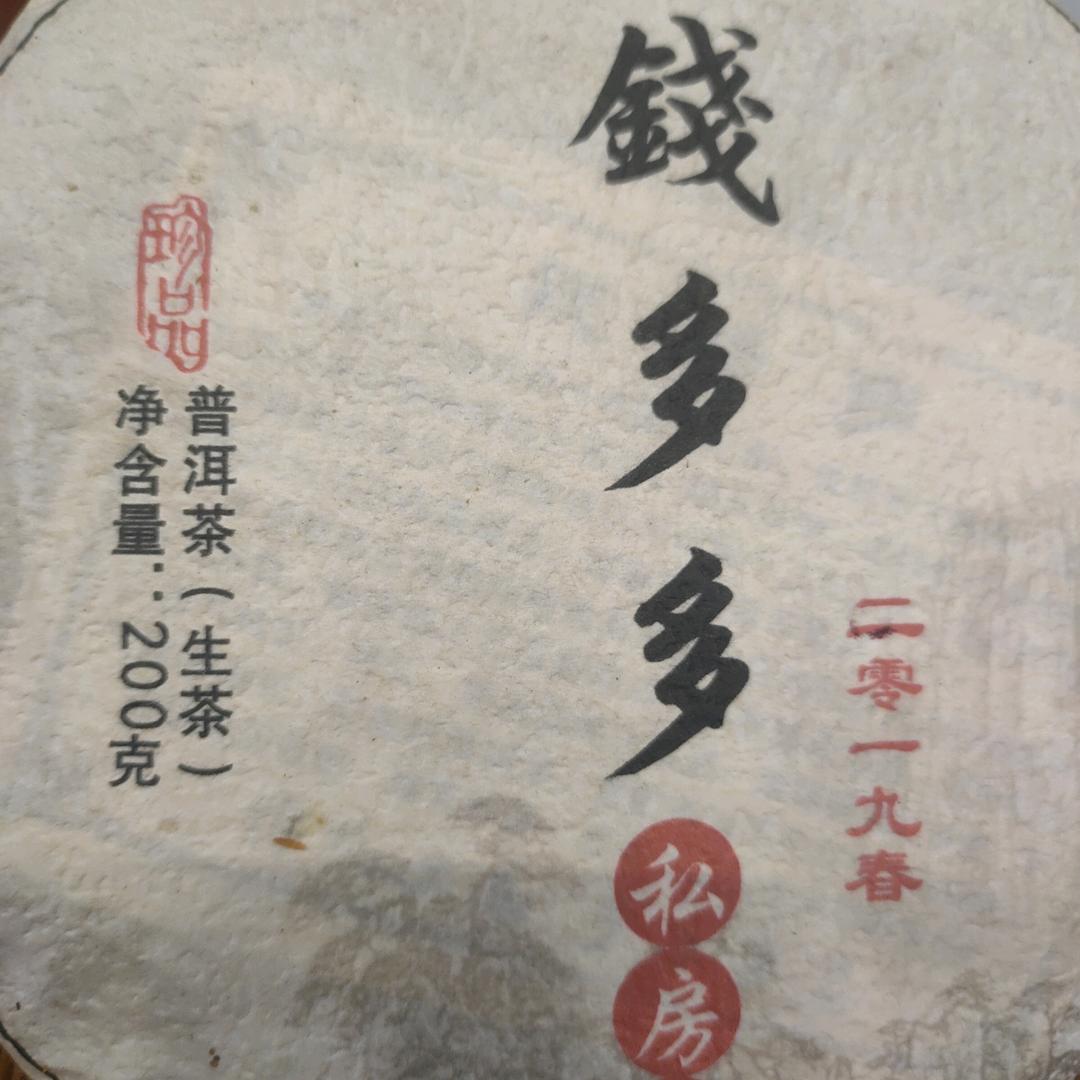 二零一九春
錢多多
私房
珍品
普洱茶（生茶）
净含量：200克